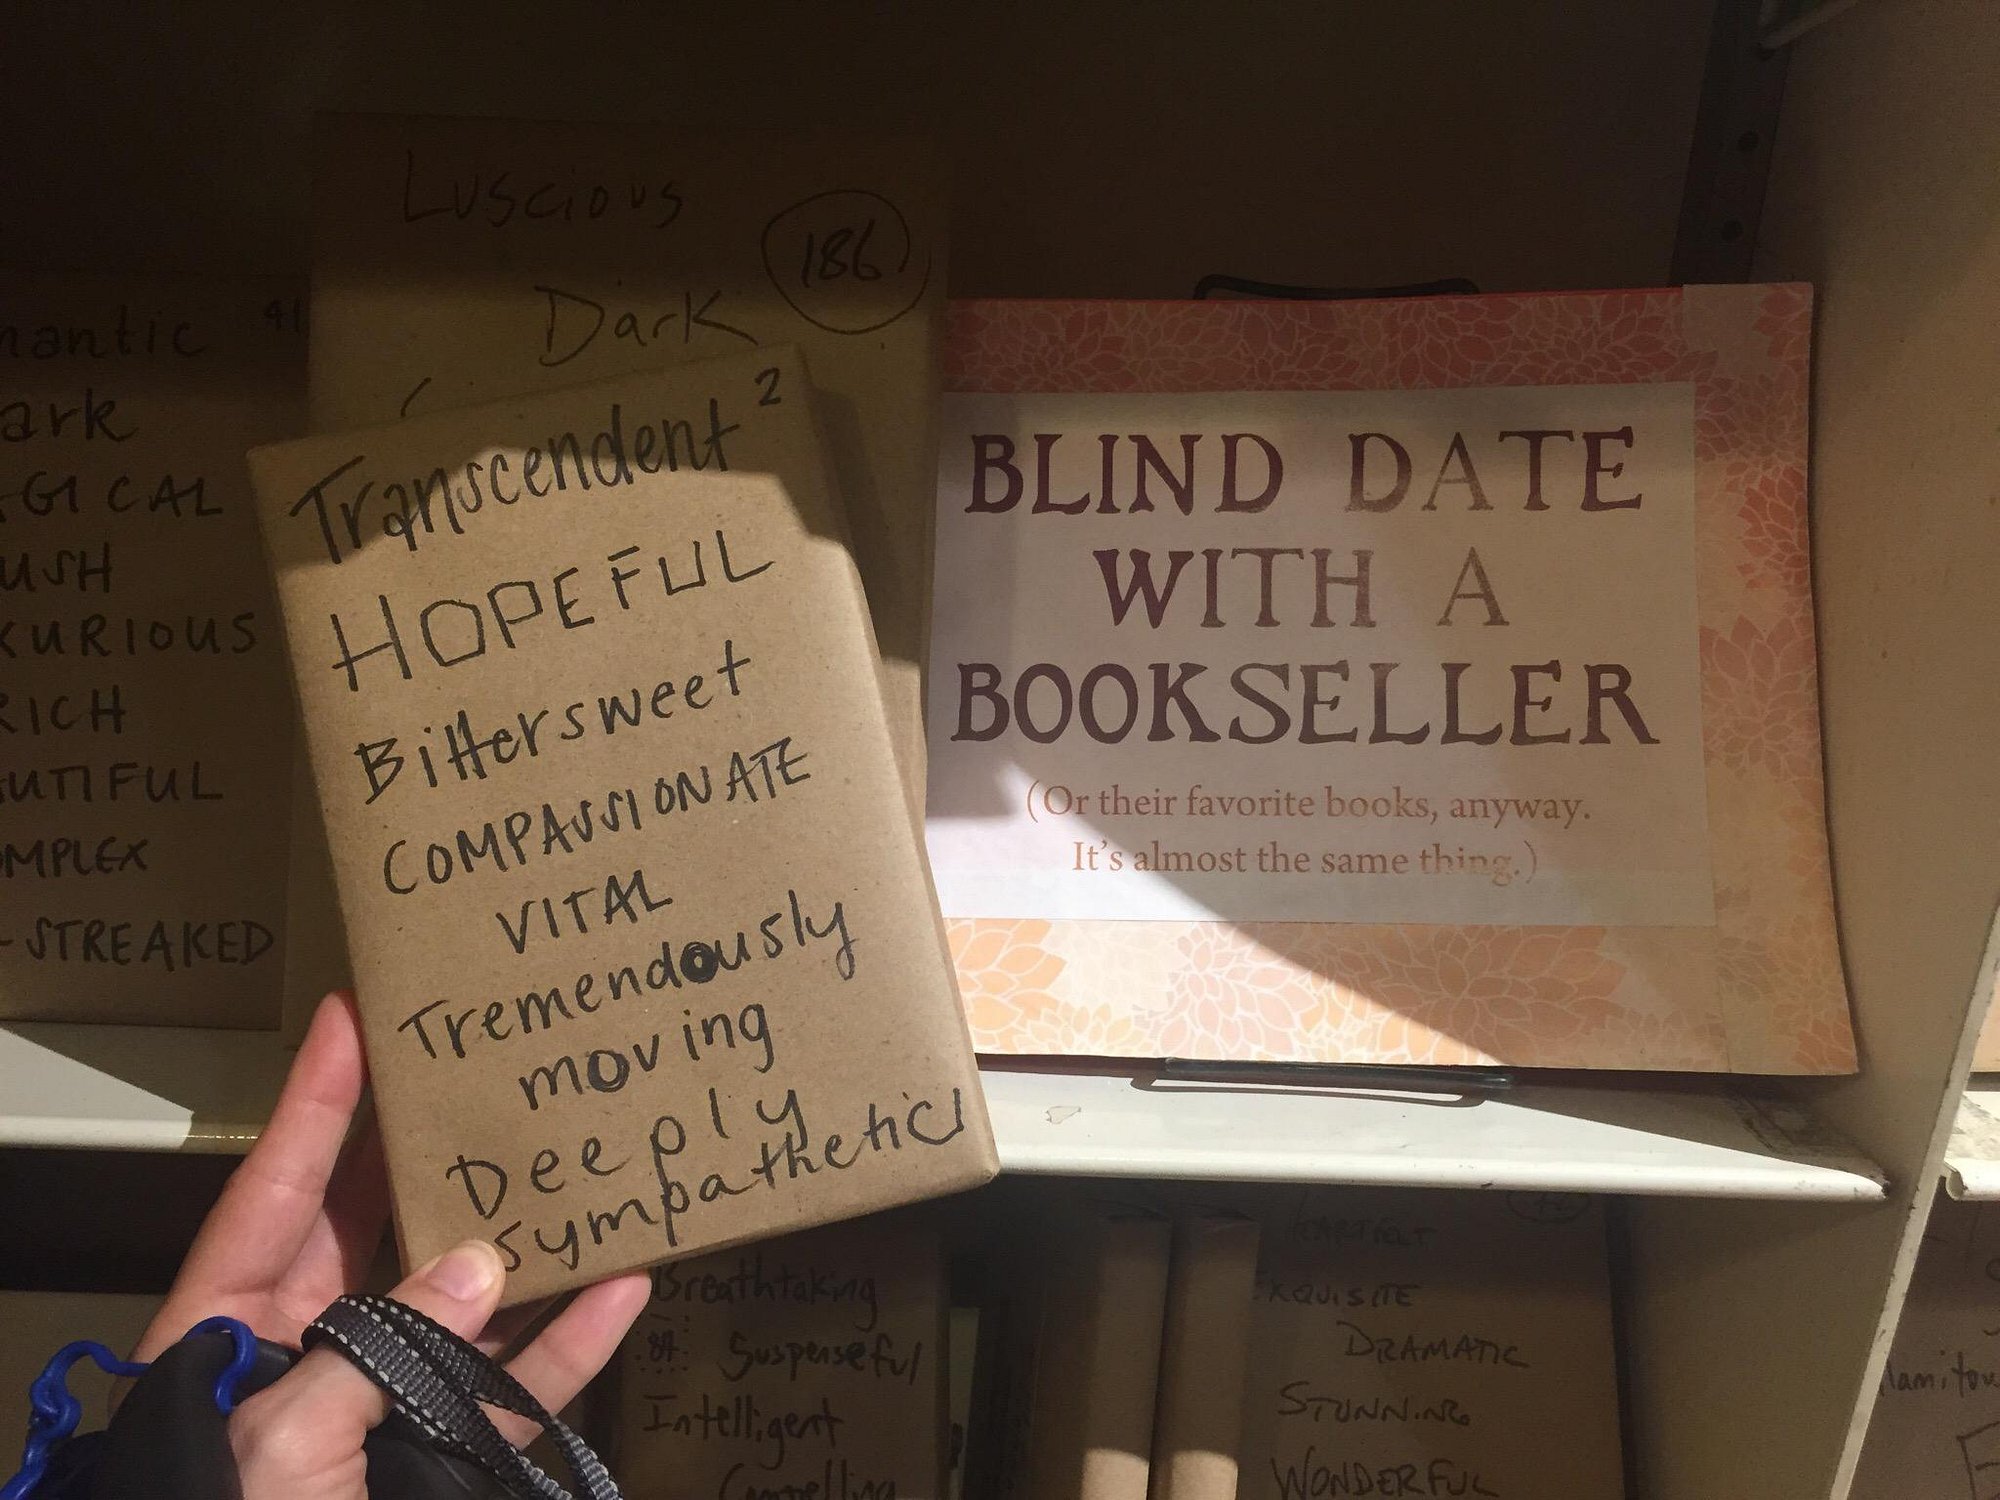 Luscious
186
Dark
41
ark
GICAL
USH
XURIOUS
RICH
UTIFUL
OMPLEX
-STREAKED
Transcendent 2
HOPEFUL
Bittersweet
COMPASSIONATE
VITAL
Tremendously
moving
Deeply
sympathetic
BLIND DATE
WITH A
BOOKSELLER
(Or their favorite books, anyway.
It's almost the same thing.)
Breathtaking
84 Suspenseful
Intelligent
Compelling
XQUISITE
DRAMATIC
STUNNING
WONDERFUL